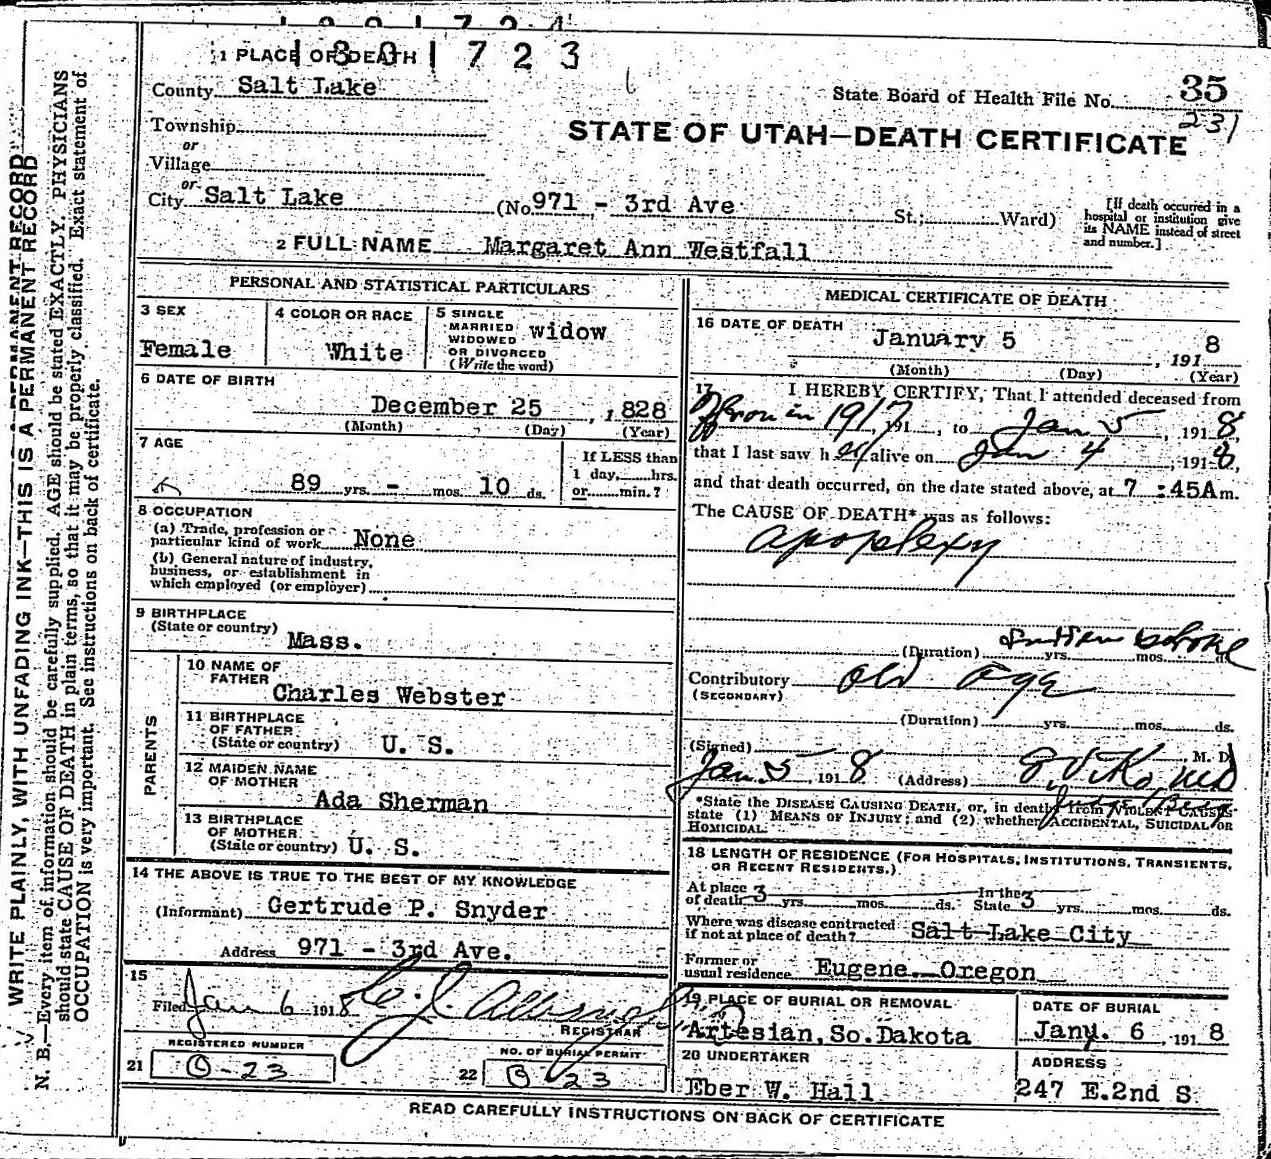 1801723
1 PLACE OF DEATH
County Salt Lake
State Board of Health File No. 35
231
Township
or
Village
or
City Salt Lake
STATE OF UTAH—DEATH CERTIFICATE
(No. 971 - 3rd Ave St.; Ward)
[If death occurred in a
hospital or institution give
its NAME instead of street
and number.]
2 FULL NAME Margaret Ann Westfall
PERSONAL AND STATISTICAL PARTICULARS
3 SEX
Female
4 COLOR OR RACE
White
5 SINGLE
MARRIED
WIDOWED
OR DIVORCED
(Write the word)
widow
6 DATE OF BIRTH
December 25, 1828
(Month) (Day) (Year)
7 AGE
89 yrs. - mos. 10 ds.
If LESS than
1 day, hrs.
or min.?
8 OCCUPATION
(a) Trade, profession or
particular kind of work None
(b) General nature of industry,
business, or establishment in
which employed (or employer)
9 BIRTHPLACE
(State or country) Mass.
PARENTS
10 NAME OF
FATHER Charles Webster
11 BIRTHPLACE
OF FATHER
(State or country) U. S.
12 MAIDEN NAME
OF MOTHER
Ada Sherman
13 BIRTHPLACE
OF MOTHER
(State or country) U. S.
14 THE ABOVE IS TRUE TO THE BEST OF MY KNOWLEDGE
(Informant) Gertrude P. Snyder
Address 971 - 3rd Ave.
15
Filed Jan 6 1918
REGISTRAR
REGISTERED NUMBER
21 B-23
NO. OF BURIAL PERMIT
22 B-23
MEDICAL CERTIFICATE OF DEATH
16 DATE OF DEATH January 5, 1918
(Month) (Day) (Year)
17 I HEREBY CERTIFY, That I attended deceased from
in 1917 191 , to Jan 5, 1918,
that I last saw her alive on Jan 4, 1918,
and that death occurred, on the date stated above, at 7:45A m.
The CAUSE OF DEATH* was as follows:
apoplexy
(Duration) yrs. mos. ds.
Contributory Old Age
(SECONDARY)
(Duration) yrs. mos. ds.
(Signed) M. D.
Jan. 5 1918 (Address)
*State the DISEASE CAUSING DEATH, or, in deaths from VIOLENT CAUSES
state (1) MEANS OF INJURY; and (2) whether ACCIDENTAL, SUICIDAL OR
HOMICIDAL.
18 LENGTH OF RESIDENCE (FOR HOSPITALS, INSTITUTIONS, TRANSIENTS,
OR RECENT RESIDENTS.)
At place
of death 3 yrs. mos. ds. In the
State 3 yrs. mos. ds.
Where was disease contracted
if not at place of death? Salt Lake City
Former or
usual residence Eugene. Oregon
19 PLACE OF BURIAL OR REMOVAL
Artesian, So. Dakota
DATE OF BURIAL
Jany. 6, 1918
20 UNDERTAKER
Eber W. Hall
ADDRESS
247 E.2nd S
READ CAREFULLY INSTRUCTIONS ON BACK OF CERTIFICATE
WRITE PLAINLY, WITH UNFADING INK—THIS IS A PERMANENT RECORD
N. B.—Every item of information should be carefully supplied. AGE should be stated EXACTLY. PHYSICIANS
should state CAUSE OF DEATH in plain terms, so that it may be properly classified. Exact statement of
OCCUPATION is very important. See instructions on back of certificate.